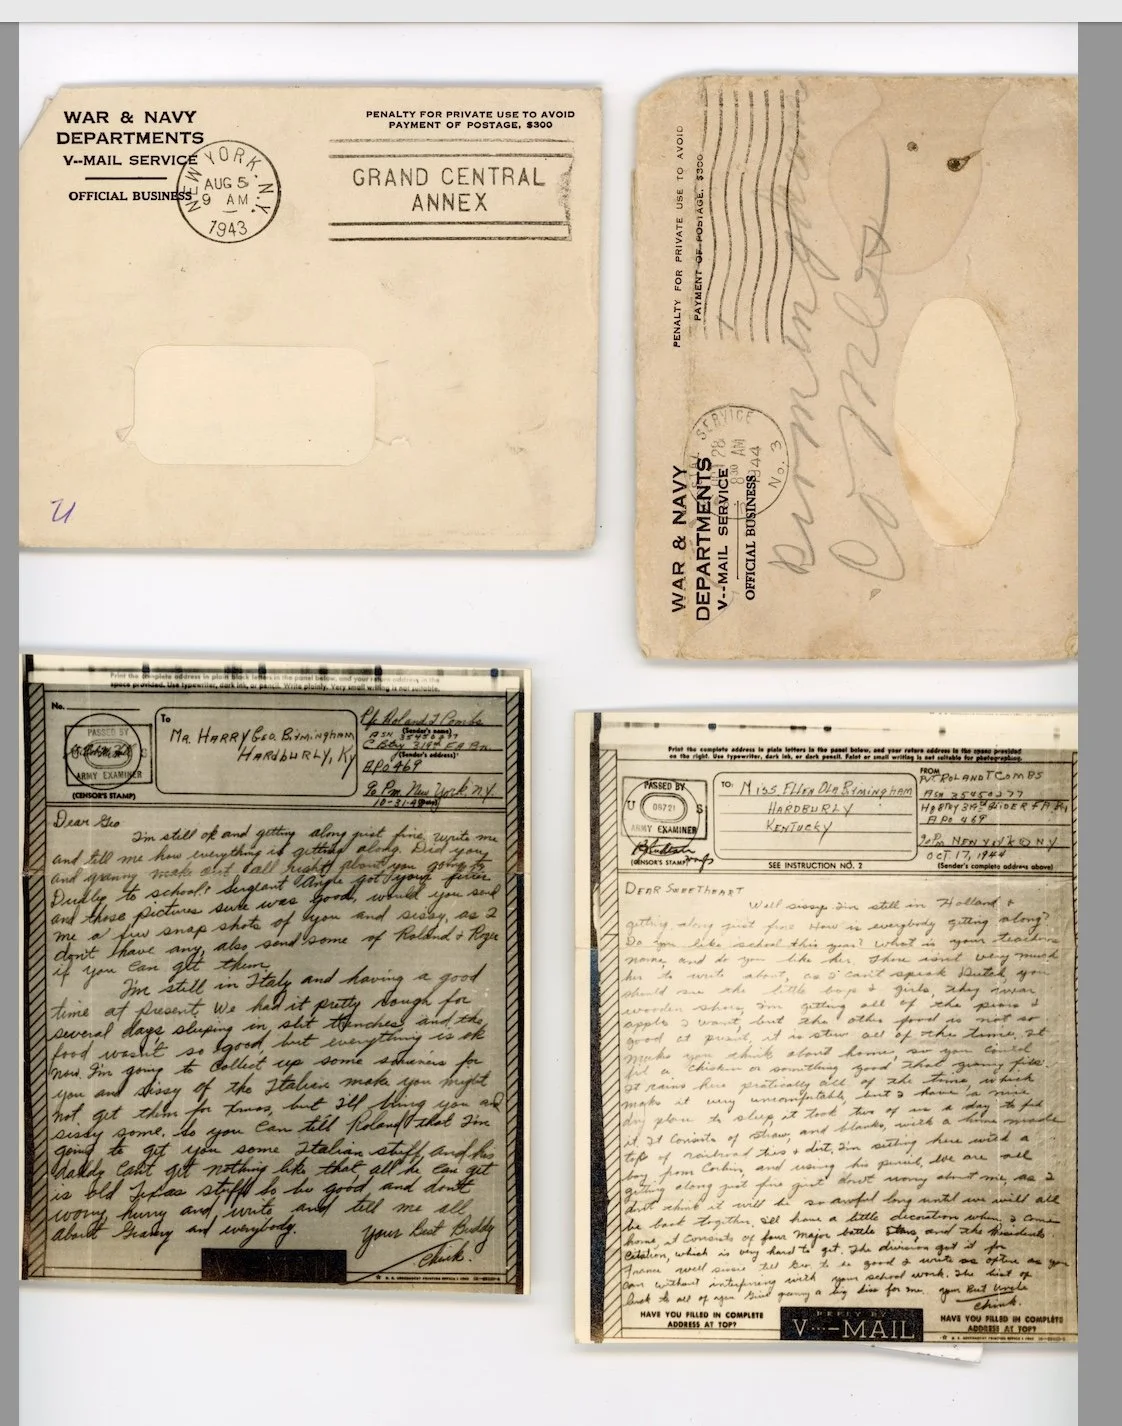 WAR & NAVY
DEPARTMENTS
V--MAIL SERVICE
OFFICIAL BUSINESS
NEW YORK, N.Y.
AUG 5
9 AM
1943
PENALTY FOR PRIVATE USE TO AVOID
PAYMENT OF POSTAGE, $300
GRAND CENTRAL
ANNEX
U
WAR & NAVY
DEPARTMENTS
V--MAIL SERVICE
OFFICIAL BUSINESS
PENALTY FOR PRIVATE USE TO AVOID
PAYMENT OF POSTAGE, $300
SERVICE
28
8 30 AM
1944
No. 3
Birmingham
Combs
Print the complete address in plain block letters in the panel below, and your return address in the
space provided. Use typewriter, dark ink, or pencil. Write plainly. Very small writing is not suitable.
No.
PASSED BY
ARMY EXAMINER
(CENSOR'S STAMP)
To
Mr. HARRY GEO. BIRMINGHAM
HARDBURLY, Ky
Roland T Combs
(Sender's name)
ASN 35450277
C Btry 319th F.A. Bn.
(Sender's address)
APO 469
New York N.Y.
Dear Geo
I'm still ok and getting along just fine, write me
and tell me how everything is getting along. Did you
and granny make out all right about you going to
to school? Sergeant got your
and those pictures sure was good, would you send
me a few snap shots of you and sissy, as I
don't have any, also send some of Roland & Roger
if you can get them.
I'm still in Italy and having a good
time at present. We had it pretty rough for
several days sleeping in slit trenches and the
food wasn't so good but everything is ok
now. I'm going to collect up some for
you and sissy of the Italian make you might
not get them for xmas, but I'll bring you and
sissy some. So you can tell Roland that I'm
going to get you some Italian stuff, and his
daddy can't get nothing like that all he can get
is old Texas stuff. So be good and don't
worry hurry and write and tell me all
about Granny and everybody.
Your Best Buddy
Chink.
Print the complete address in plain letters in the panel below, and your return address in the space provided
on the right. Use typewriter, dark ink, or dark pencil. Faint or small writing is not suitable for photographing.
PASSED BY
U S
08721
ARMY EXAMINER
(CENSOR'S STAMP)
TO:
MISS ELLEN OLA BIRMINGHAM
HARDBURLY
KENTUCKY
SEE INSTRUCTION NO. 2
FROM
PVT. ROLAND T COMBS
ASN 35450277
APO 469
NEW YORK N Y
OCT. 17, 1944
(Sender's complete address above)
DEAR SWEETHEART
Well sissy I'm still in Holland &
getting along just fine How is everybody getting along?
Do you like school this year? What is your teachers
name, and do you like her. There isn't very much
her to write about, as I can't speak Dutch, you
should see the little boys & girls, they wear
wooden shoes. I'm getting all of the pears &
apples I want, but the other food is not so
good at , it is stew all of the time, it
makes you think about home, so you could
a chicken or something good that granny .
It rains here all of the time, which
makes it very uncomfortable, but I have a nice
dry place to sleep, it took two of us a day to
it. It of straw, and , with a home made
top of railroad ties & dirt. I'm sitting here with a
boy from Corbin, and using his pencil, We are all
getting along just fine just don't worry about me, as I
don't think it will be so awful long until we will all
be back together, I'll have a little decoration when I come
home, it consists of four Major battle Stars, and the Presidents
Citation, which is very hard to get. The division got it for
France well sissie tell Geo. to be good & write as often as you
can without interfering with your school work. The best of
luck to all of give granny a big kiss for me.
your Best Uncle
Chink.
HAVE YOU FILLED IN COMPLETE
ADDRESS AT TOP?
REPLY BY
V···-MAIL
HAVE YOU FILLED IN COMPLETE
ADDRESS AT TOP?